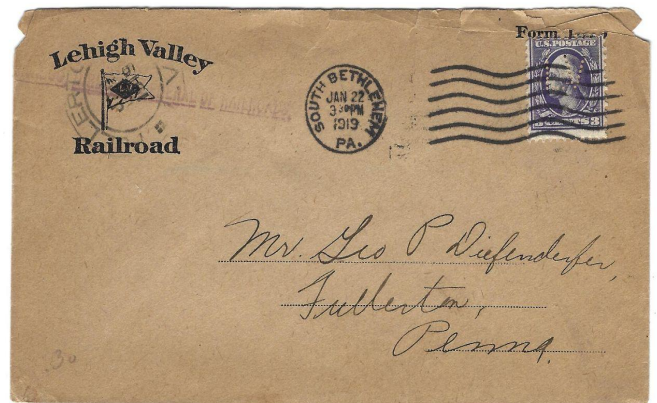 Lehigh Valley
Railroad
SOUTH BETHLEHEM
JAN 22
PM
1919
PA.
Form
U.S. POSTAGE
3 CENTS 3
Mr. Geo P Diefenderfer,
Fullerton,
Penna.